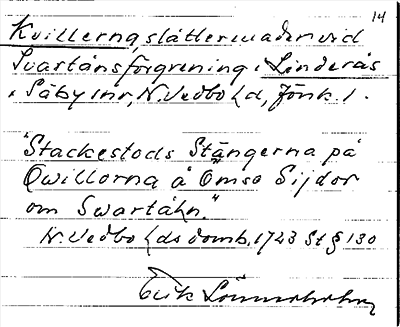 14
Kvillerna, slåttermaden vid
Svartåns förgrening i Linderås
i Säby sn, N. Vedbo hd, Jönk. l.
"Stackestods Stängerna på
Qwillorna å ömse Sijdor
om Swartåhn."
N. Vedbo hds domb. 1723 St § 130
Erik